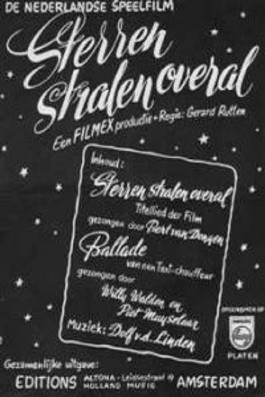 DE NEDERLANDSE SPEELFILM
Sterren
stralen overal
Een FILMEX productie • Regie: Gerard Rutten
Inhoud:
Sterren stralen overal
Titellied der Film
gezongen door Bert van Dongen
Ballade
van een Taxi-chauffeur
gezongen door
Willy Walden en
Piet Muyselaar
Muziek: Dolf v.d. Linden
OPGENOMEN OP
PHILIPS
PLATEN
Gezamenlijke uitgave:
EDITIONS ALTONA - Leidsestraat 11 AMSTERDAM
HOLLAND MUSIC